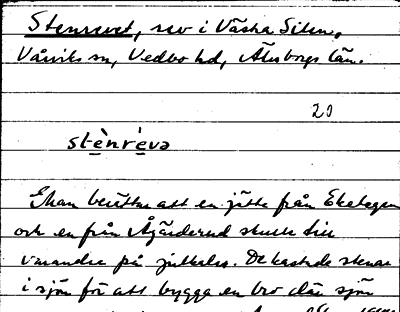 Stenrevet, rev i Västra Silen,
Vårviks sn, Vedbo hd, Älvsborgs län.
20
stènrèva
Man berättar att en jätte från Ekelagen
och en från Ågärderud skulle till
varandra på julkalas. De kastade stenar
i sjön för att bygga en bro där sjön